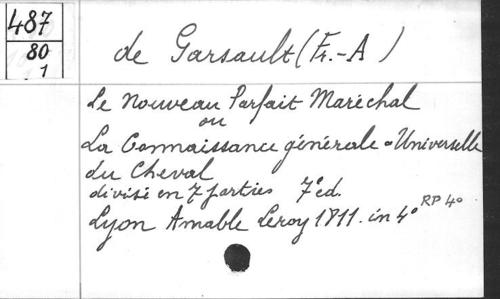 487
80
1
de Garsault (Fr.-A)
Le Nouveau Parfait Maréchal
ou
La Connaissance générale & Universelle
du Cheval
divisé en 7 parties 7e ed.
Lyon Amable Leroy 1811. in 4° RP 4°